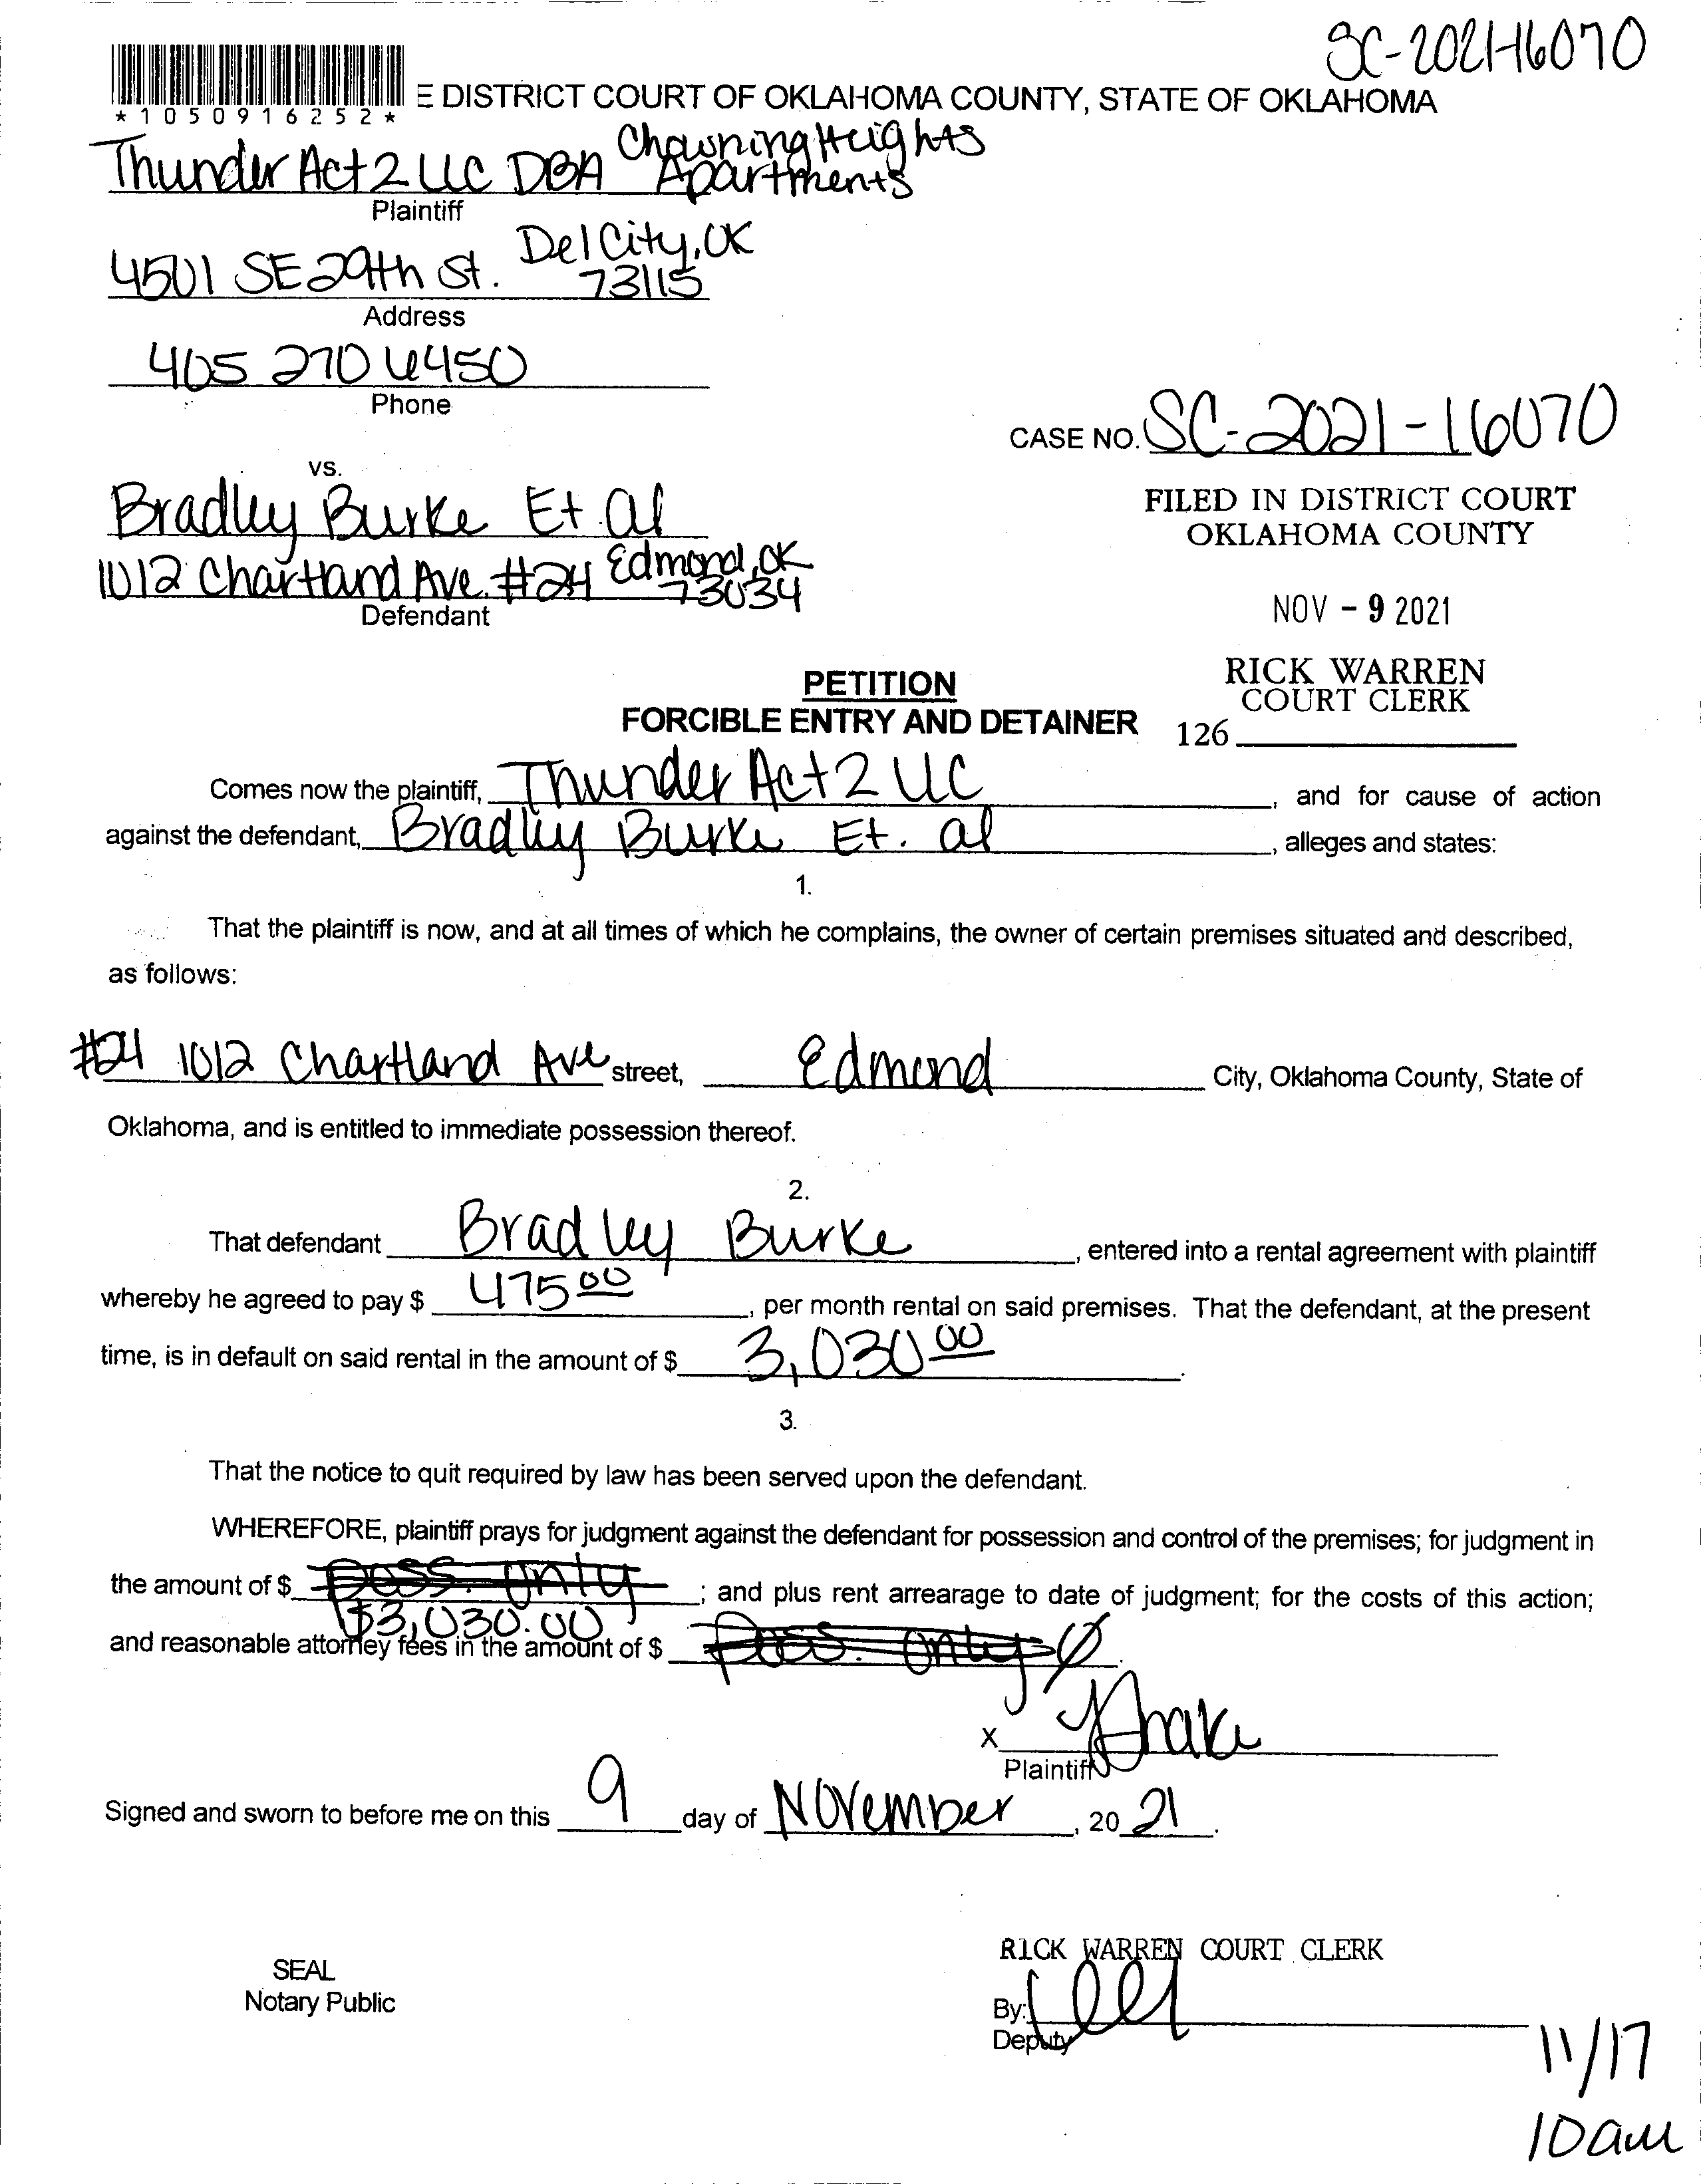 SC-2021-16070
*1050916252*
E DISTRICT COURT OF OKLAHOMA COUNTY, STATE OF OKLAHOMA
Thunder Act 2 LLC DBA Chowning Heights Apartments
Plaintiff
4501 SE 29th St. Del City, OK 73115
Address
405 270 6450
Phone
CASE NO. SC-2021-16070
vs.
Bradley Burke Et al
1012 Chartland Ave. #24 Edmond, OK 73034
Defendant
FILED IN DISTRICT COURT
OKLAHOMA COUNTY
NOV - 9 2021
RICK WARREN
COURT CLERK
126
PETITION
FORCIBLE ENTRY AND DETAINER
Comes now the plaintiff, Thunder Act 2 LLC, and for cause of action
against the defendant, Bradley Burke Et. al, alleges and states:
1.
That the plaintiff is now, and at all times of which he complains, the owner of certain premises situated and described,
as follows:
#24 1012 Chartland Ave street, Edmond City, Oklahoma County, State of
Oklahoma, and is entitled to immediate possession thereof.
2.
That defendant Bradley Burke, entered into a rental agreement with plaintiff
whereby he agreed to pay $ 475 00, per month rental on said premises. That the defendant, at the present
time, is in default on said rental in the amount of $ 3,030 00.
3.
That the notice to quit required by law has been served upon the defendant.
WHEREFORE, plaintiff prays for judgment against the defendant for possession and control of the premises; for judgment in
the amount of $ poss. only; and plus rent arrearage to date of judgment; for the costs of this action;
$3,030.00
and reasonable attorney fees in the amount of $ poss. only Ø.
X
Plaintiff
Signed and sworn to before me on this 9 day of November, 20 21.
SEAL
Notary Public
RICK WARREN COURT CLERK
By:
Deputy
11/17
10am